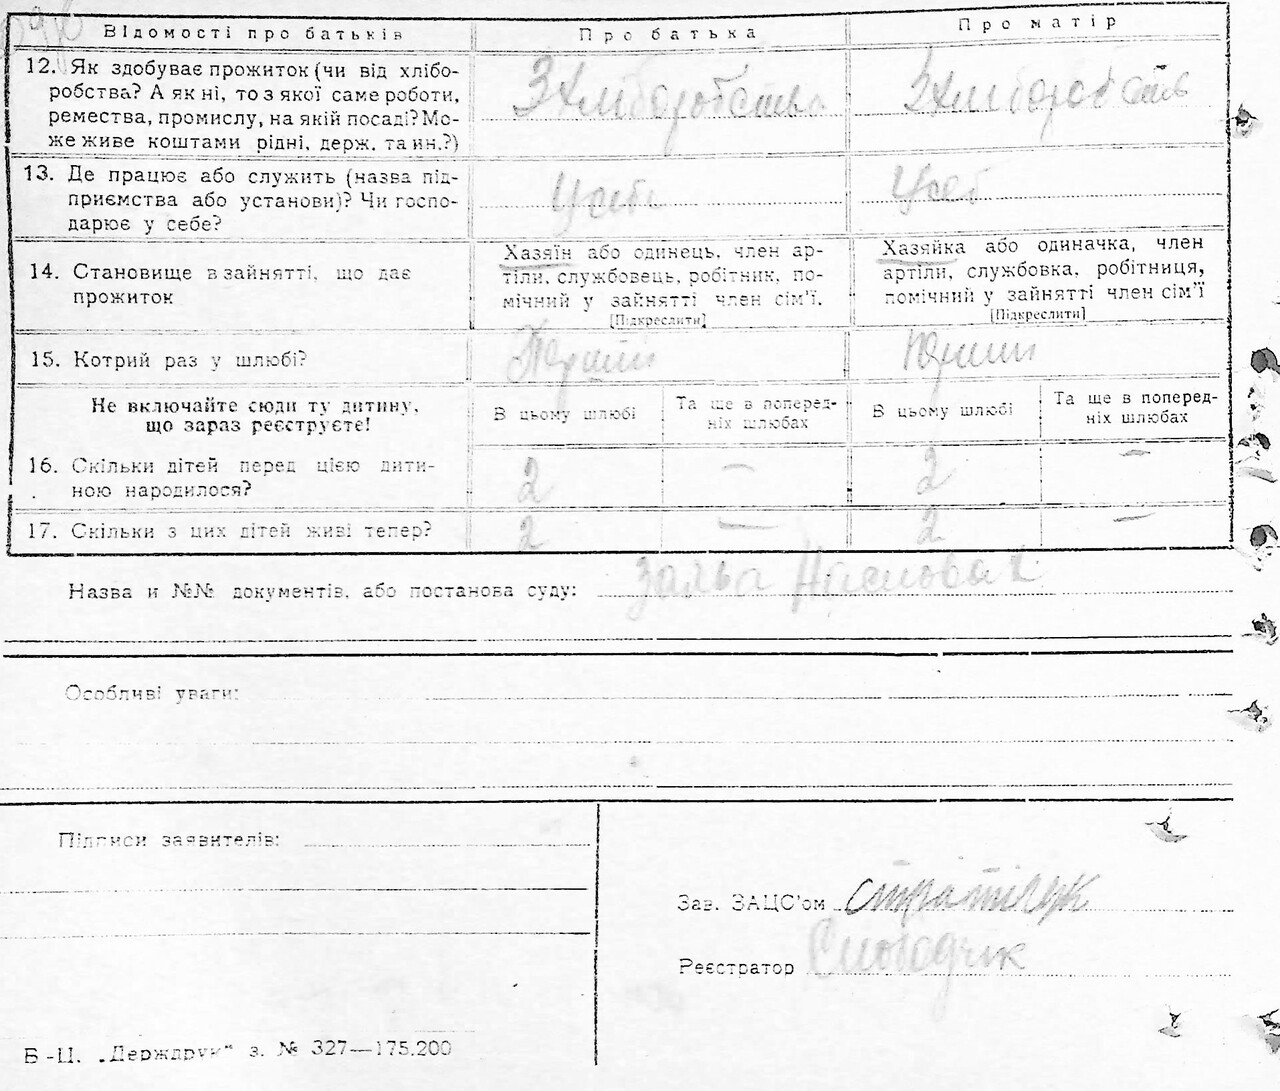 Відомості про батьків Про батька Про матір
12. Як здобуває прожиток (чи від хлібо-
робства? А як ні, то з якої саме роботи,
ремества, промислу, на якій посаді? Мо-
же живе коштами рідні, держ. та ин.?)
З хліборобства З хліборобств
13. Де працює або служить (назва під-
приємства або установи)? Чи госпо-
дарює у себе?
У себе У себ
14. Становище в зайнятті, що дає
прожиток
Хазяїн або одинець, член ар-
тіли, службовець, робітник, по-
мічний у зайнятті член сім'ї.
[Підкреслити]
Хазяйка або одиначка, член
артіли, службовка, робітниця,
помічний у зайнятті член сім'ї
[Підкреслити]
15. Котрий раз у шлюбі?
Перший Перший
Не включайте сюди ту дитину,
що зараз реєструєте!
В цьому шлюбі
Та ще в поперед-
ніх шлюбах
В цьому шлюбі
Та ще в поперед-
ніх шлюбах
16. Скільки дітей перед цією дити-
ною народилося?
2 — 2 —
17. Скільки з цих дітей живі тепер? 2 — 2 —
Назва и №№ документів, або постанова суду: Заява
Особливі уваги:
Підписи заявителів:
Зав. ЗАЦС'ом
Реєстратор
Б-Ц. „Держдрук“ з. № 327—175.200